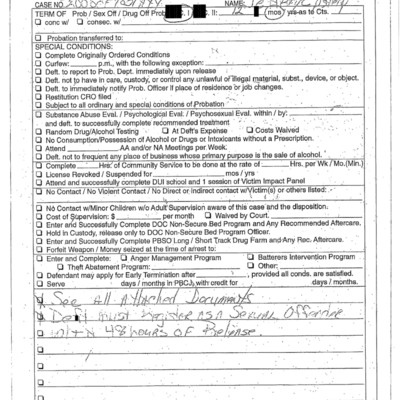 CASE NO. NAME:
TERM OF Prob / Sex Off / Drug Off Prob I II: 12 (mos) yrs as to Cts.
☐ conc w/ ☐ consec. w/
☐ Probation transferred to:
SPECIAL CONDITIONS:
☐ Complete Originally Ordered Conditions
☐ Curfew: p.m., with the following exception:
☐ Deft. to report to Prob. Dept. immediately upon release
☐ Deft. not to have in care, custody, or control any unlawful or illegal material, subst., device, or object.
☐ Deft. to immediately notify Prob. Officer if place of residence or job changes.
☐ Restitution CRO filed
☐ Subject to all ordinary and special conditions of Probation
☐ Substance Abuse Eval. / Psychological Eval. / Psychosexual Eval. within / by;
and deft. to successfully complete recommended treatment
☐ Random Drug/Alcohol Testing ☐ At Deft's Expense ☐ Costs Waived
☐ No Consumption/Possession of Alcohol or Drugs or Intoxicants without a Prescription.
☐ Attend AA and/or NA Meetings per Week.
☐ Deft. not to frequent any place of business whose primary purpose is the sale of alcohol.
☐ Complete Hrs. of Community Service to be done at the rate of Hrs. per Wk / Mo.(Min.)
☐ License Revoked / Suspended for mos / yrs
☐ Attend and successfully complete DUI school and 1 session of Victim Impact Panel
☐ No Contact / No Violent Contact / No Direct or indirect contact w/Victim(s) or others listed:
☐ No Contact w/Minor Children w/o Adult Supervision aware of this case and the disposition.
☐ Cost of Supervision: $ per month ☐ Waived by Court.
☐ Enter and Successfully Complete DOC Non-Secure Bed Program and Any Recommended Aftercare.
☐ Hold in Custody, release only to DOC Non-Secure Bed Program Officer.
☐ Enter and Successfully Complete PBSO Long / Short Track Drug Farm and Any Rec. Aftercare.
☐ Forfeit Weapon / Money seized at the time of arrest to:
☐ Enter and Complete: ☐ Anger Management Program ☐ Batterers Intervention Program
☐ Theft Abatement Program: ☐ Other:
☐ Defendant may apply for Early Termination after , provided all conds. are satisfied.
☐ Serve days / months in PBCJ, with credit for days / months.
See All Attached Documents
Deft must register as a Sexual Offender
w/in 48 hours of Release.